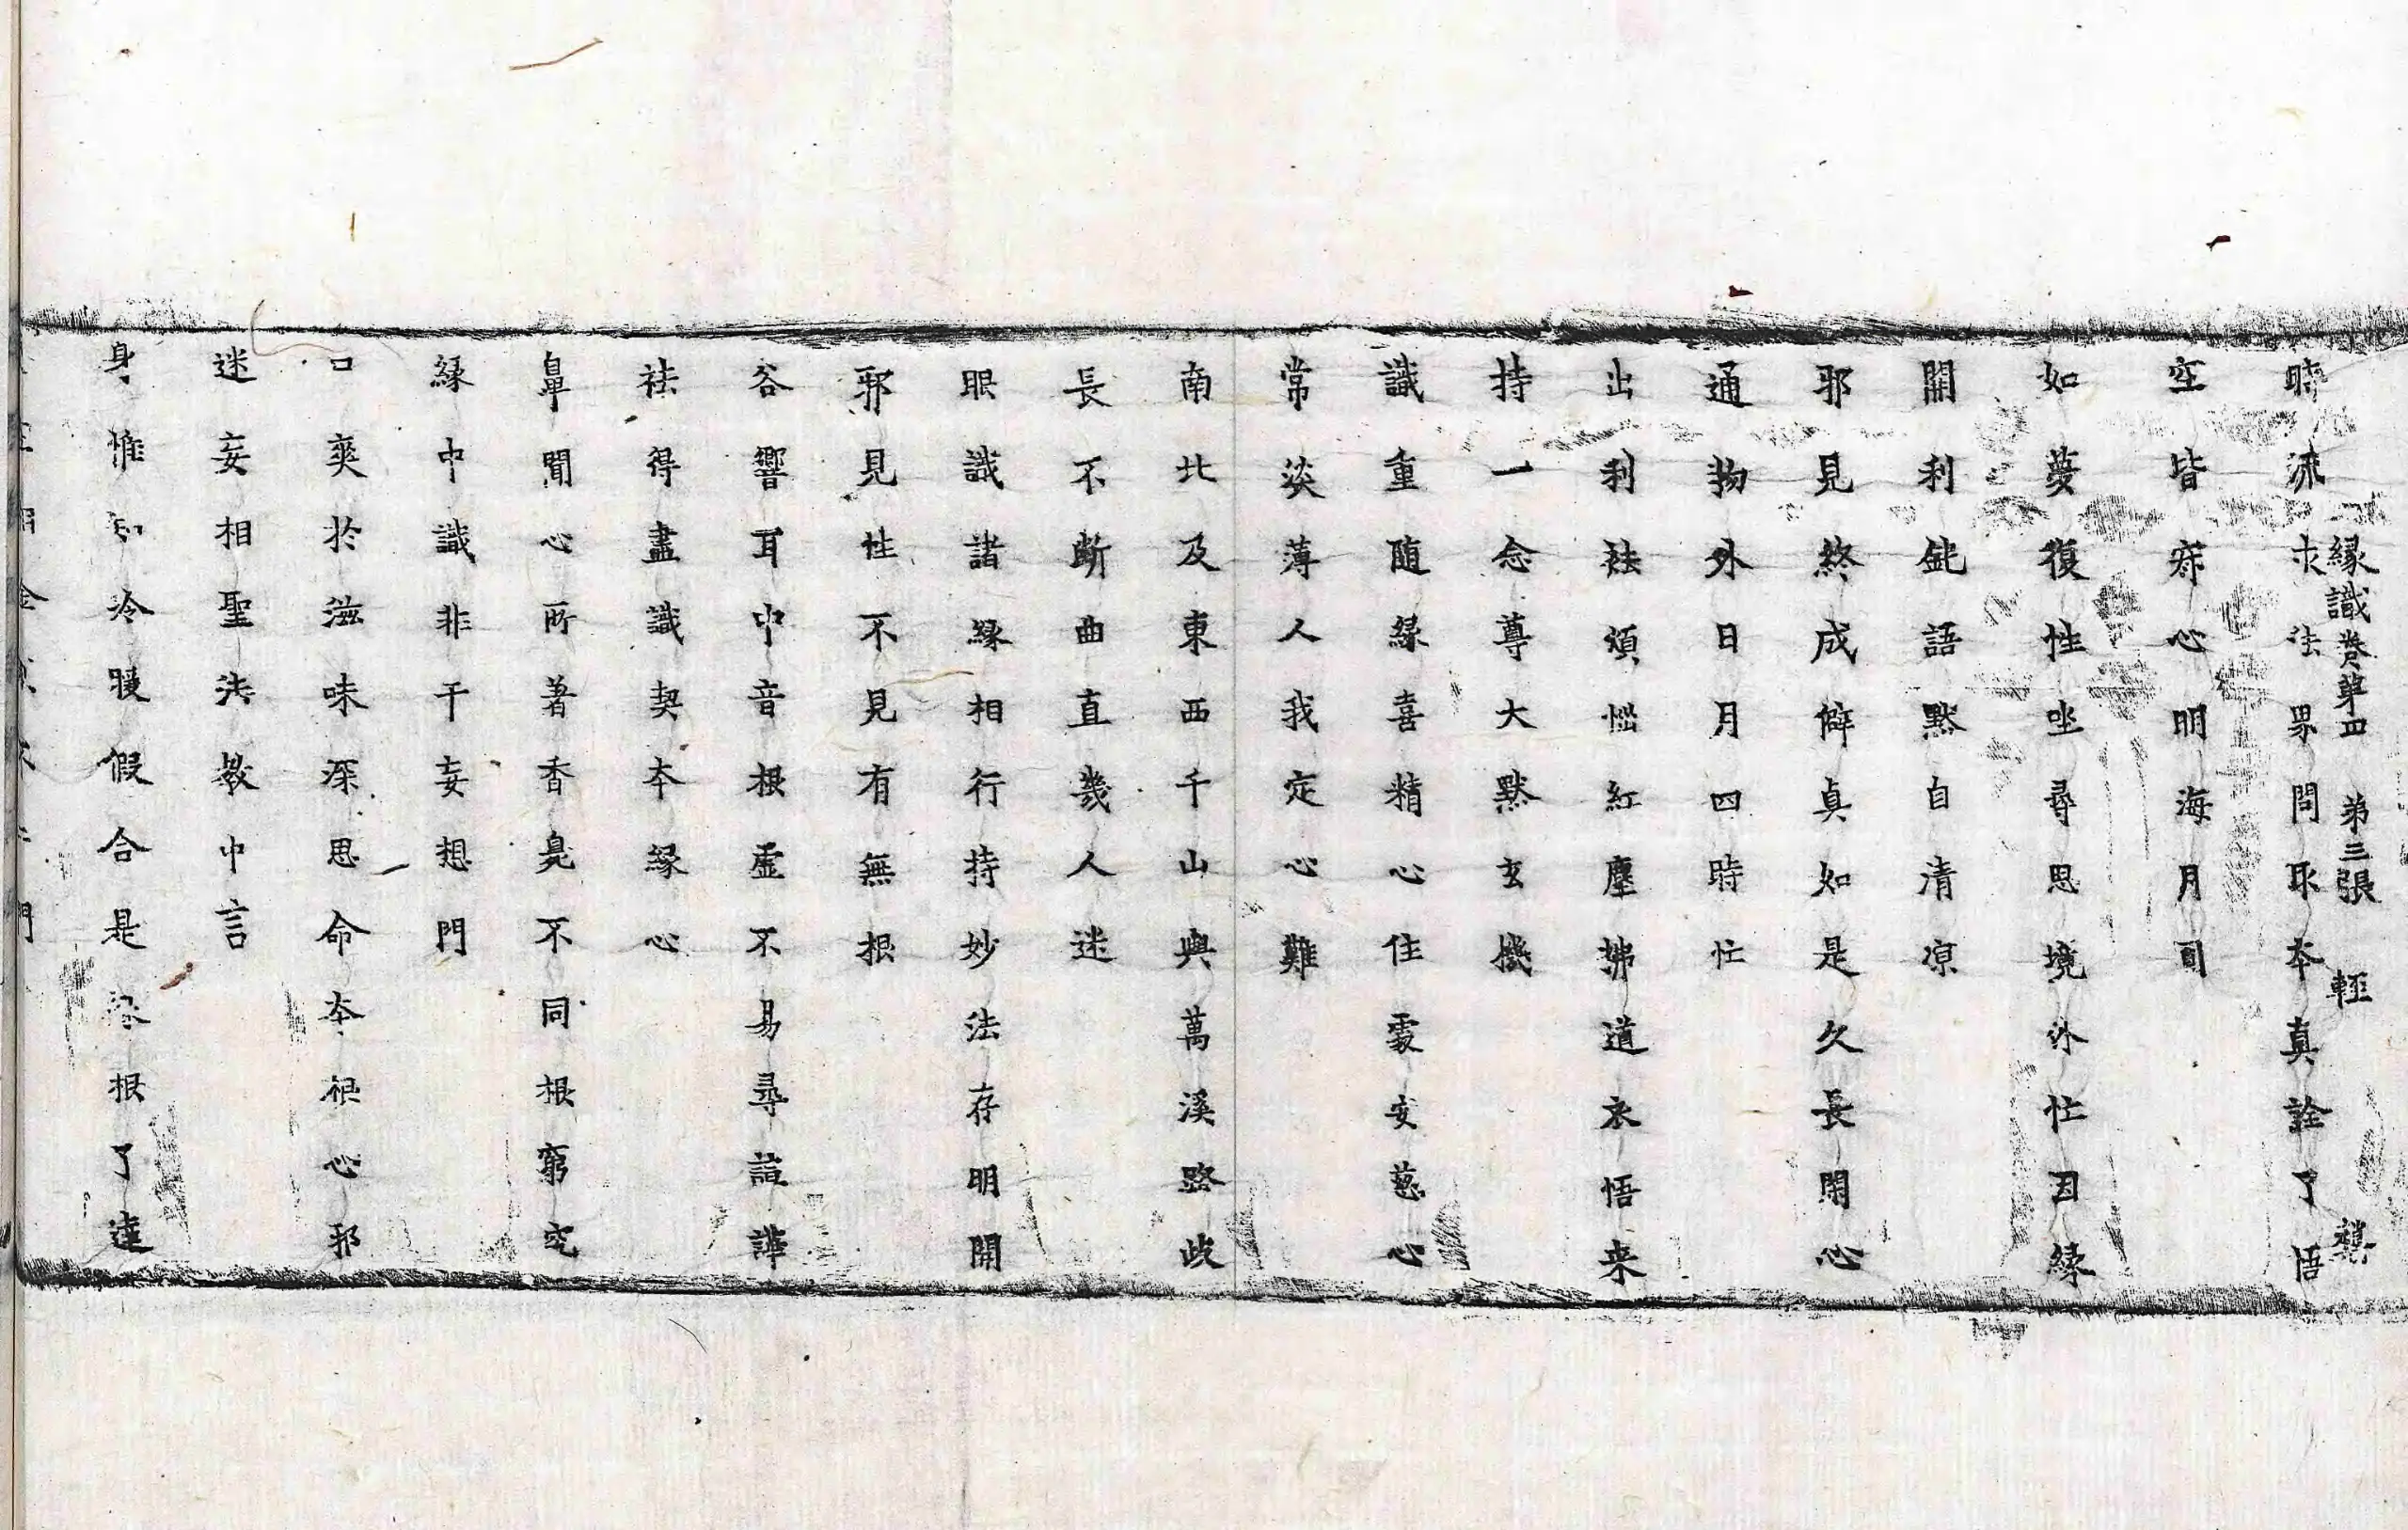 緣識卷第四 第三張 輕 龔
時流求法界問取本真詮了悟
空皆寂心明海月圓
如夢復性坐尋思境外忙因緣
開利鈍語默自清凉
邪見終成僻真如是久長閑心
通物外日月四時忙
出利祛煩惱紅塵拂道衣悟来
持一念尊大默玄機
識重随緣喜精心住處安慈心
常淡薄人我定心難
南北及東西千山與萬溪路歧
長不斷曲直幾人迷
眼識諸緣相行持妙法存明開
邪見性不見有無根
谷響耳中音根虛不易尋諠譁
祛得盡識契本緣心
鼻聞心所著香臭不同根窮究
緣中識非干妄想門
口爽於滋味深思命本根心邪
迷妄相聖法教中言
身惟知冷暖假合是 根了達